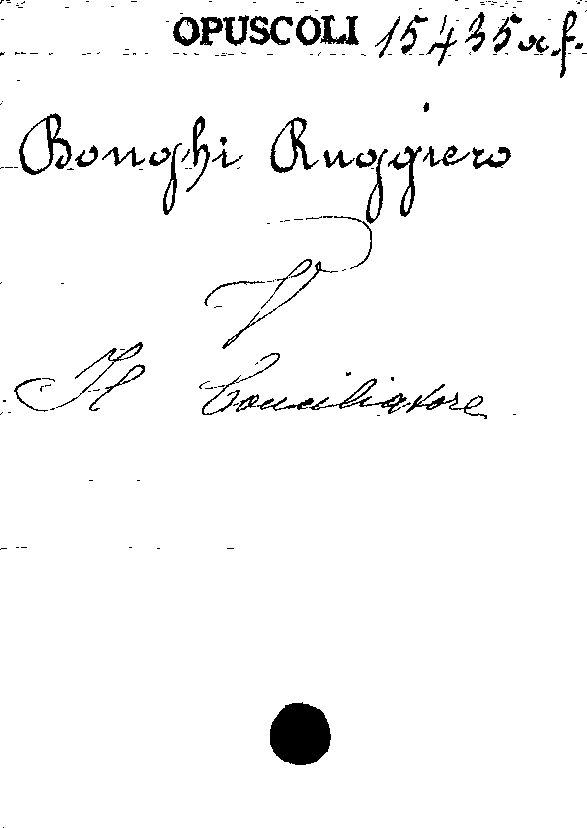 OPUSCOLI 15435 a.f.
Bonghi Ruggiero
V
Il Conciliatore